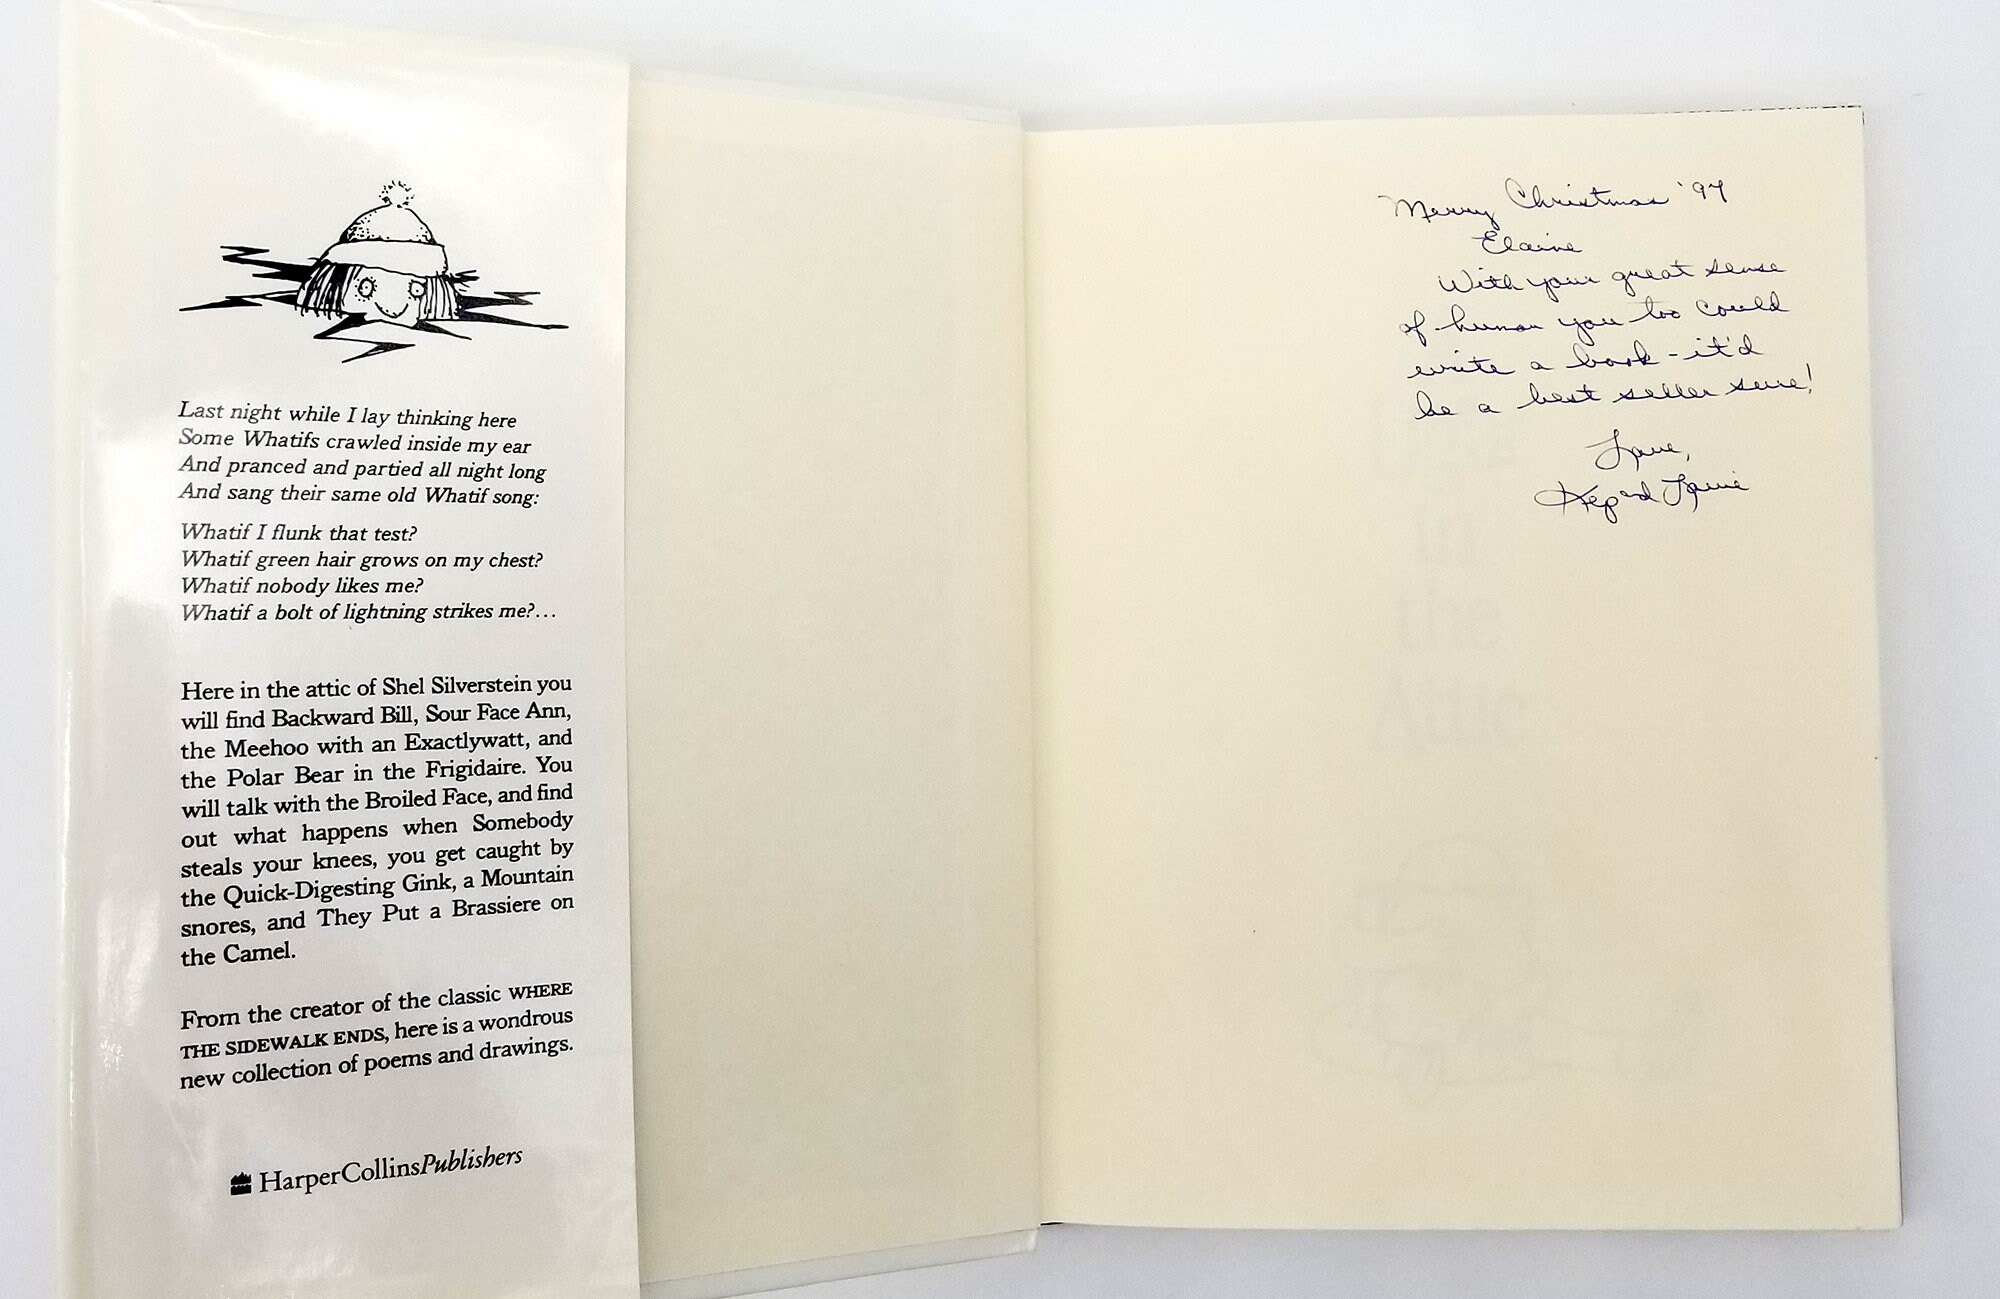 Last night while I lay thinking here
Some Whatifs crawled inside my ear
And pranced and partied all night long
And sang their same old Whatif song:
Whatif I flunk that test?
Whatif green hair grows on my chest?
Whatif nobody likes me?
Whatif a bolt of lightning strikes me?...
Here in the attic of Shel Silverstein you
will find Backward Bill, Sour Face Ann,
the Meehoo with an Exactlywatt, and
the Polar Bear in the Frigidaire. You
will talk with the Broiled Face, and find
out what happens when Somebody
steals your knees, you get caught by
the Quick-Digesting Gink, a Mountain
snores, and They Put a Brassiere on
the Camel.
From the creator of the classic WHERE
THE SIDEWALK ENDS, here is a wondrous
new collection of poems and drawings.
HarperCollinsPublishers
Merry Christmas '97
Elaine
With your great sense
of humor you too could
write a book - it'd
be a best seller sure!
Love,
in
the
Attic